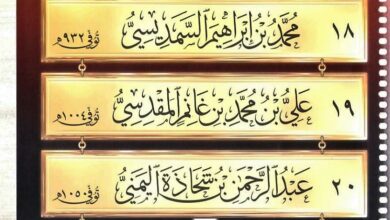 ١٨ مُحَمَّدُ بْنُ إِبْرَاهِيمَ السَّمَدِيسِيُّ توفي ٩٣٢هـ
١٩ عَلِيُّ بْنُ مُحَمَّدِ بْنِ غَانِمٍ الْمَقْدِسِيُّ توفي ١٠٠٤هـ
٢٠ عَبْدُ الرَّحْمَنِ بْنُ شَحَاذَةَ الْيَمَنِيُّ توفي ١٠٥٠هـ